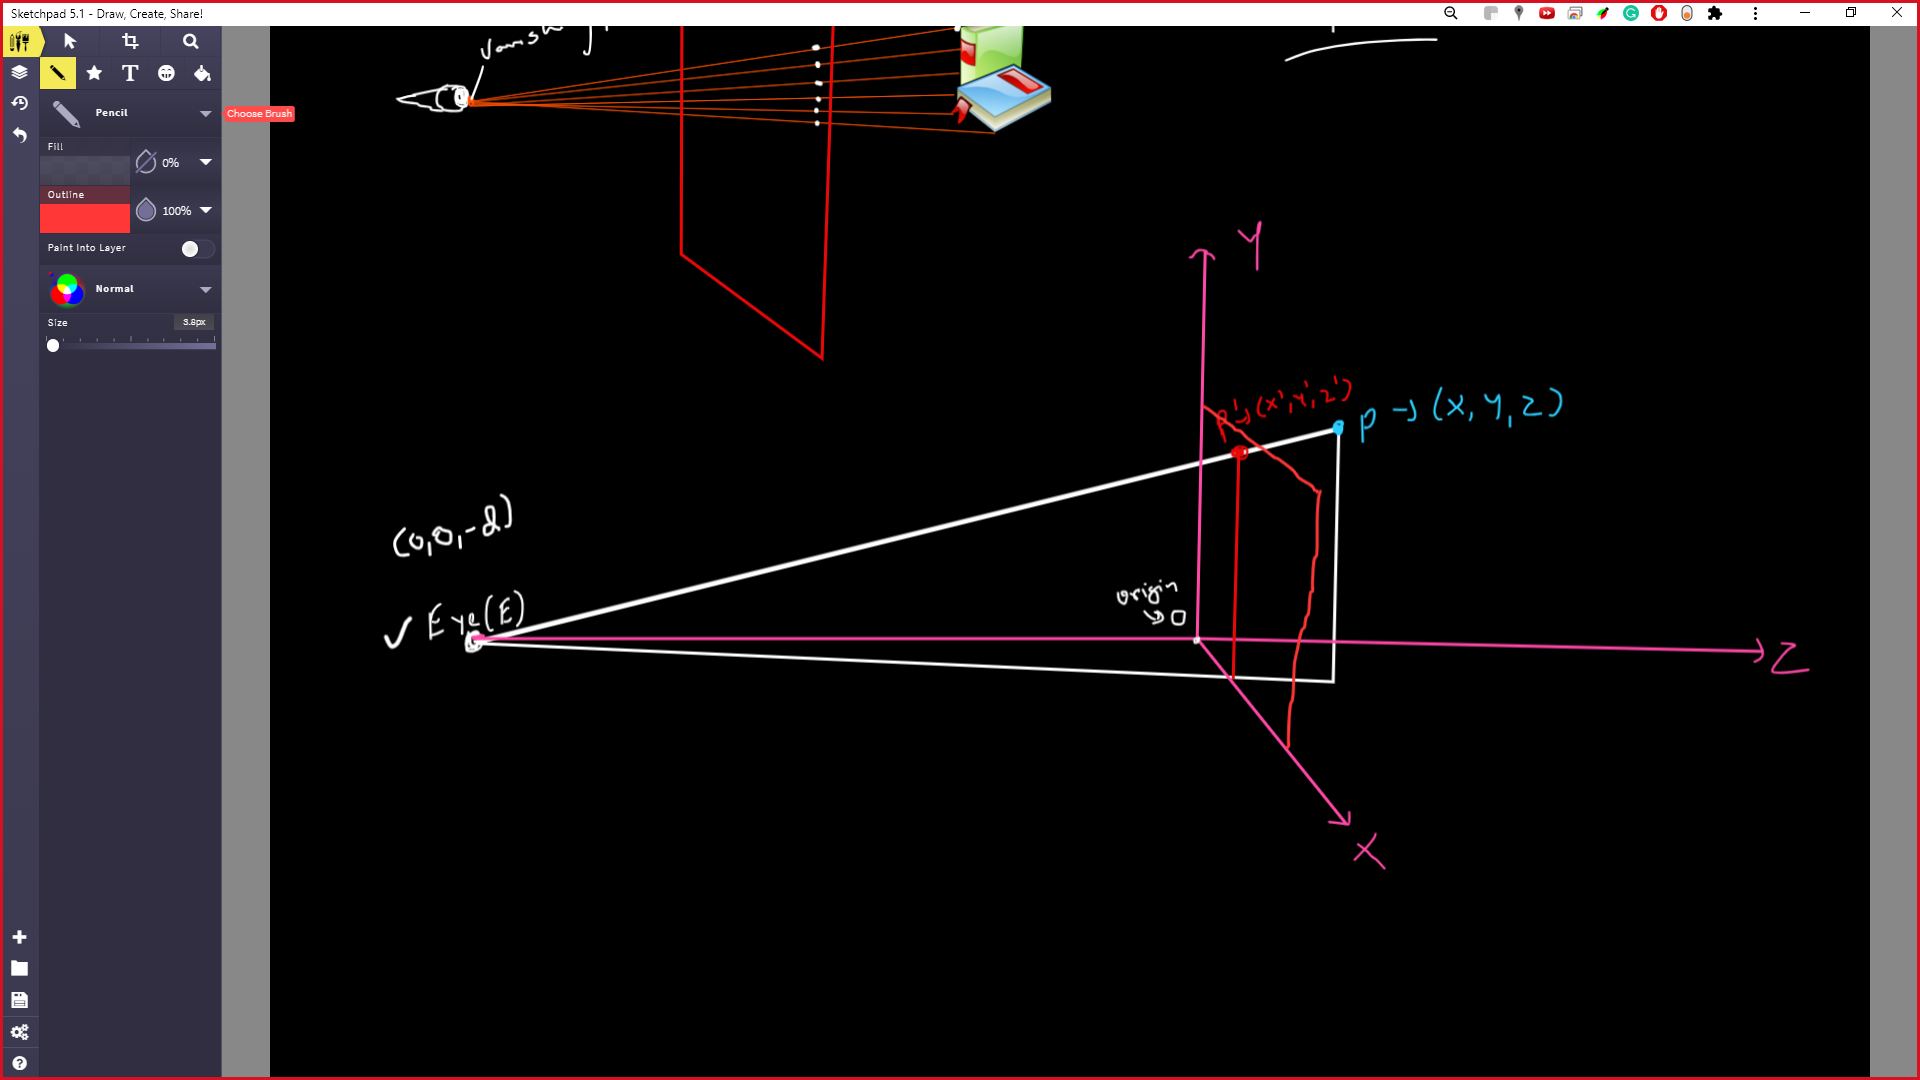 Sketchpad 5.1 - Draw, Create, Share!
Pencil
Choose Brush
Fill
0%
Outline
100%
Paint Into Layer
Normal
Size
3.8px
Y
P'→(x',y',z')
P → (x, y, z)
(0,0,-d)
✓ Eye(E)
origin
↳ O
Z
X